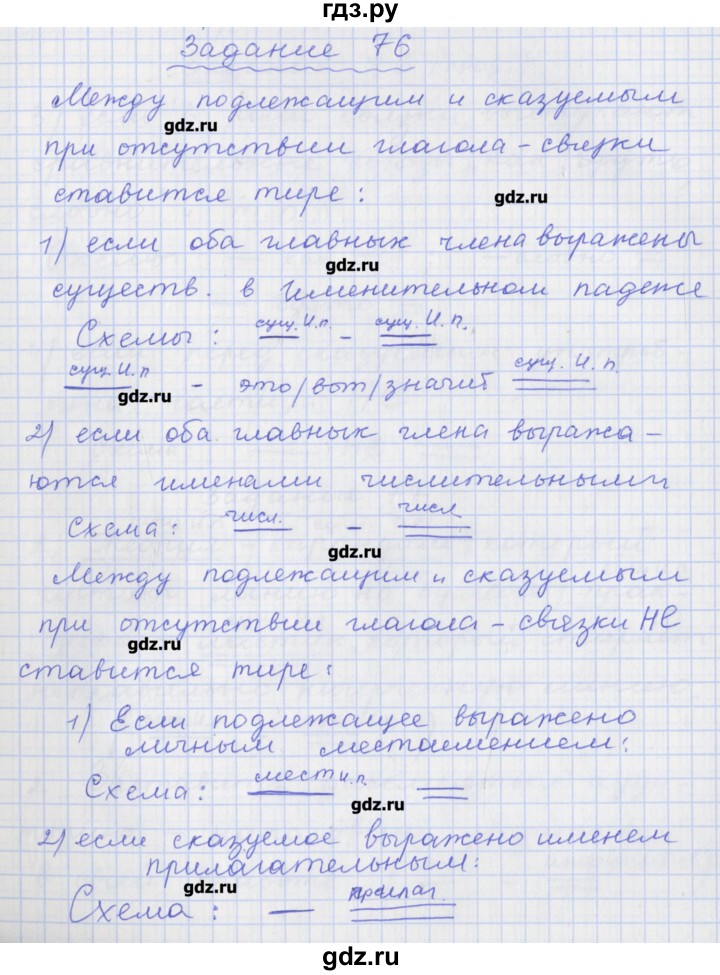 гдз.ру
Задание 76
Между подлежащим и сказуемым
gdz.ru
при отсутствии глагола-связки
ставится тире:
gdz.ru
1) если оба главных члена выражены
gdz.ru
существ. в Именительном падеже
Схемы: сущ. И.п. - сущ. И.п.
сущ. И.п - это/вот/значит сущ. И.п.
gdz.ru
2) если оба главных члена выража-
ются именами числительными
Схема: числ. - числ
gdz.ru
Между подлежащим и сказуемым
при отсутствии глагола-связки НЕ
gdz.ru
ставится тире:
1) Если подлежащее выражено
личным местоимением:
Схема: мест и.п.
gdz.ru
2) если сказуемое выражено именем
прилагательным:
gdz.ru
Схема: прилаг.
gdz.ru